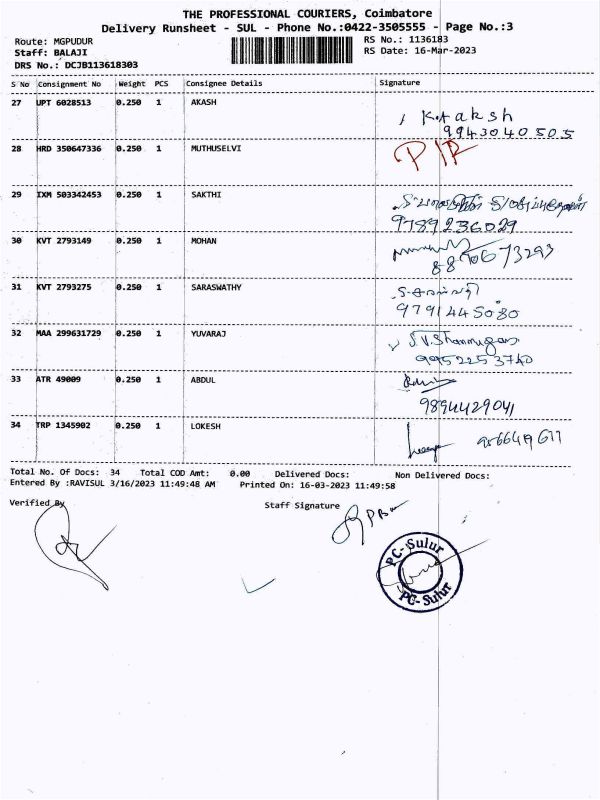 THE PROFESSIONAL COURIERS, Coimbatore
Delivery Runsheet - SUL - Phone No.:0422-3505555 - Page No.:3
Route: MGPUDUR RS No.: 1136183
Staff: BALAJI RS Date: 16-Mar-2023
DRS No.: DCJB113618303
S No Consignment No Weight PCS Consignee Details Signature
27 UPT 6028513 0.250 1 AKASH K. Akash
9943040505
28 HRD 350647336 0.250 1 MUTHUSELVI P/R
29 IXM 503342453 0.250 1 SAKTHI
9789236029
30 KVT 2793149 0.250 1 MOHAN
8890673293
31 KVT 2793275 0.250 1 SARASWATHY
9791445080
32 MAA 299631729 0.250 1 YUVARAJ S.V.Shanmugam
9952253740
33 ATR 49009 0.250 1 ABDUL
9894429041
34 TRP 1345902 0.250 1 LOKESH
Total No. Of Docs: 34 Total COD Amt: 0.00 Delivered Docs: Non Delivered Docs:
Entered By :RAVISUL 3/16/2023 11:49:48 AM Printed On: 16-03-2023 11:49:58
Verified By Staff Signature
PC-Sulur
PC-Sulur